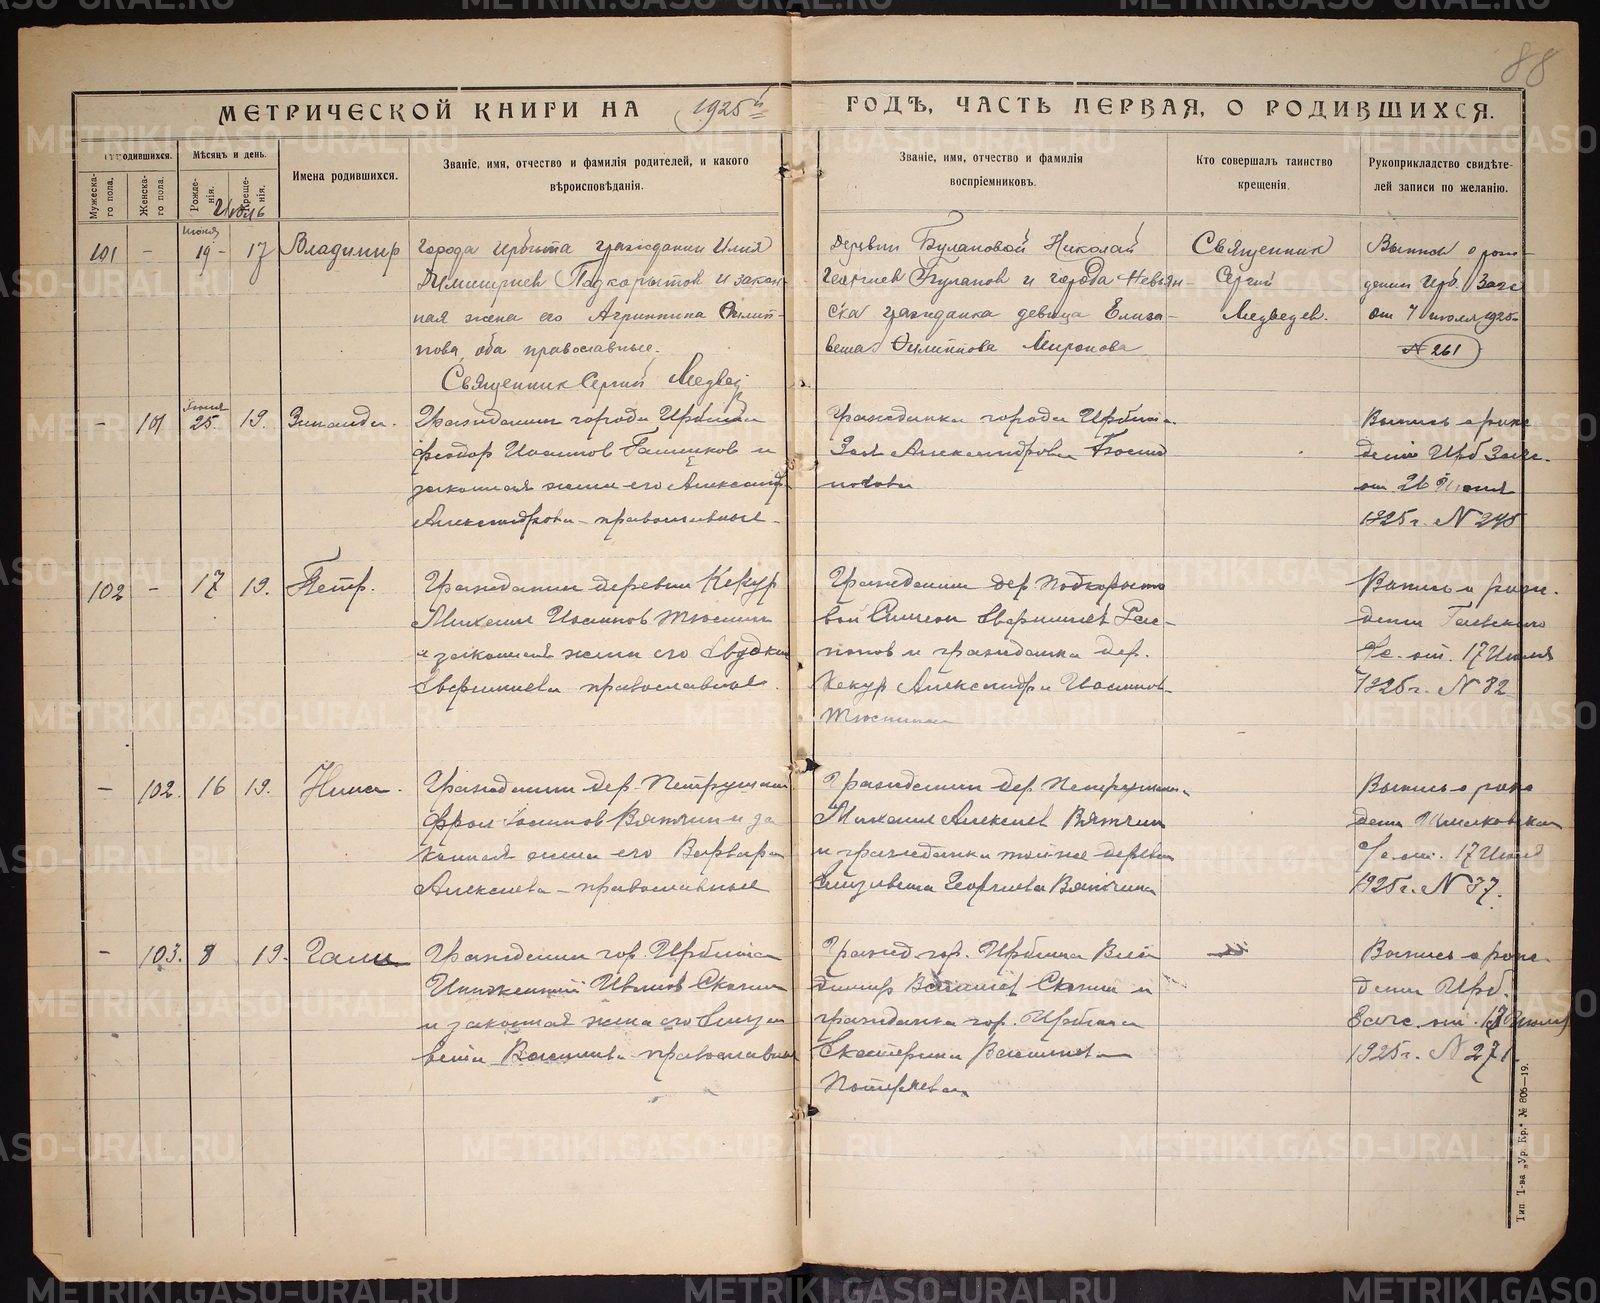 88
МЕТРИЧЕСКОЙ КНИГИ НА 1925 й ГОДЪ, ЧАСТЬ ПЕРВАЯ, О РОДИВШИХСЯ.
родившихся.
Мѣсяцъ и день.
Имена родившихся.
Званіе, имя, отчество и фамилія родителей, и какого
вѣроисповѣданія.
Званіе, имя, отчество и фамилія
воспріемниковъ.
Кто совершалъ таинство
крещенія.
Рукоприкладство свидѣте-
лей записи по желанію.
Мужеска-
го пола.
Женска-
го пола.
Рожде-
нія.
Креще-
нія.
101 - Июня 19 - 17 Владимир
города Ирбита гражданин Илия
Димитриев Подкорытов и закон-
ная жена его Агриппина Филип-
пова, оба православные.
Священник Сергий Медвед
Деревни Булановой Николай
Георгиев Буланов и города Невьян-
ска гражданка девица Елиза-
вета Филиппова Миронова
Священник
Сергий
Медведев.
Выпись о рож-
дении Ирб. Загс
от 7 июля 1925
№ 261
- 101 Июня 25. 19. Зинаида.
Гражданин города Ирбита
Феодор Иоаннов и
законная жена его Александра
Александрова - православные.
Гражданка города Ирбита
Зоя Александрова
Выпись о рож
дении Ирб Загс.
от 26 Июня
1925 г. № 245
102 - 17 19. Петр.
Гражданин деревни Кекур
Михаил Иоаннов
и законная жена его Евдокия
православные.
Гражданин дер. Подкорыто
вой Симеон
и гражданка дер.
Кекур Александра Иоаннов.
Выпись о рож.
дении
от. 17 Июля
1925 г. № 82
- 102. 16 19. Нина.
Гражданин дер.
Фрол Иоаннов Вяткин и за
конная жена его Варвара
Алексиева - православные
Гражданин дер.
Михаил Алексиев Вяткин
и гражданка той же деревни
Елизавета Георгиева Вяткина
Выпись о рож
дении
от. 17 Июля
1925 г. № 37.
- 103. 8 19. Галина
Гражданин гор. Ирбита
Иннокентий Иванов
и законная жена его Елиза
вета православные
Гражд. гор. Ирбита Вла
димир и
гражданка гор. Ирбита
Екатерина
Выпись о рож.
дении Ирб.
Загс. от. 13 Июля
1925 г. № 271.
Тип. Т-ва „Ур. Кр.“ № 806—19.
METRIKI.GASO-URAL.RU